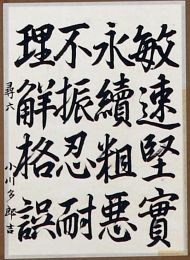 敏速堅實
永續粗悪
不振忍耐
理觧格誤
尋六 小川多郎吉